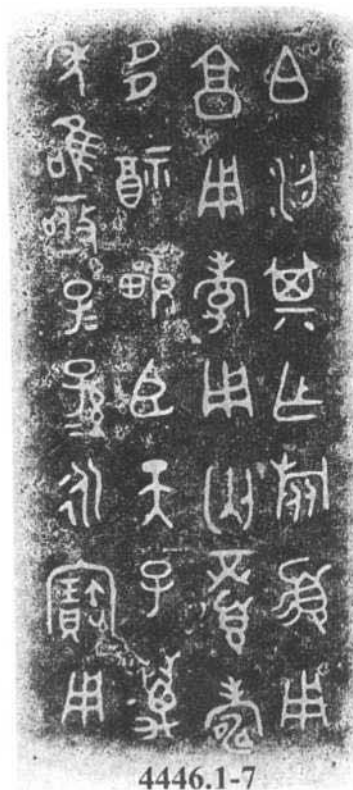 白汈其乍旅須用
亯用孝用匄眉壽
多福畯臣天子萬
年唯亟子=孫=永寶用
4446.1-7